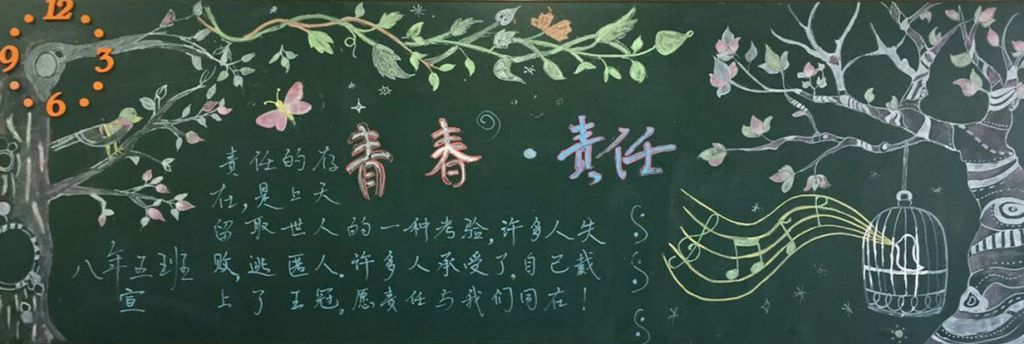 12
9 3
6
青春·责任
责任的存
在,是上天
留取世人的一种考验,许多人失
败,逃匿人.许多人承受了,自己戴
上了王冠,愿责任与我们同在!
八年五班
宣